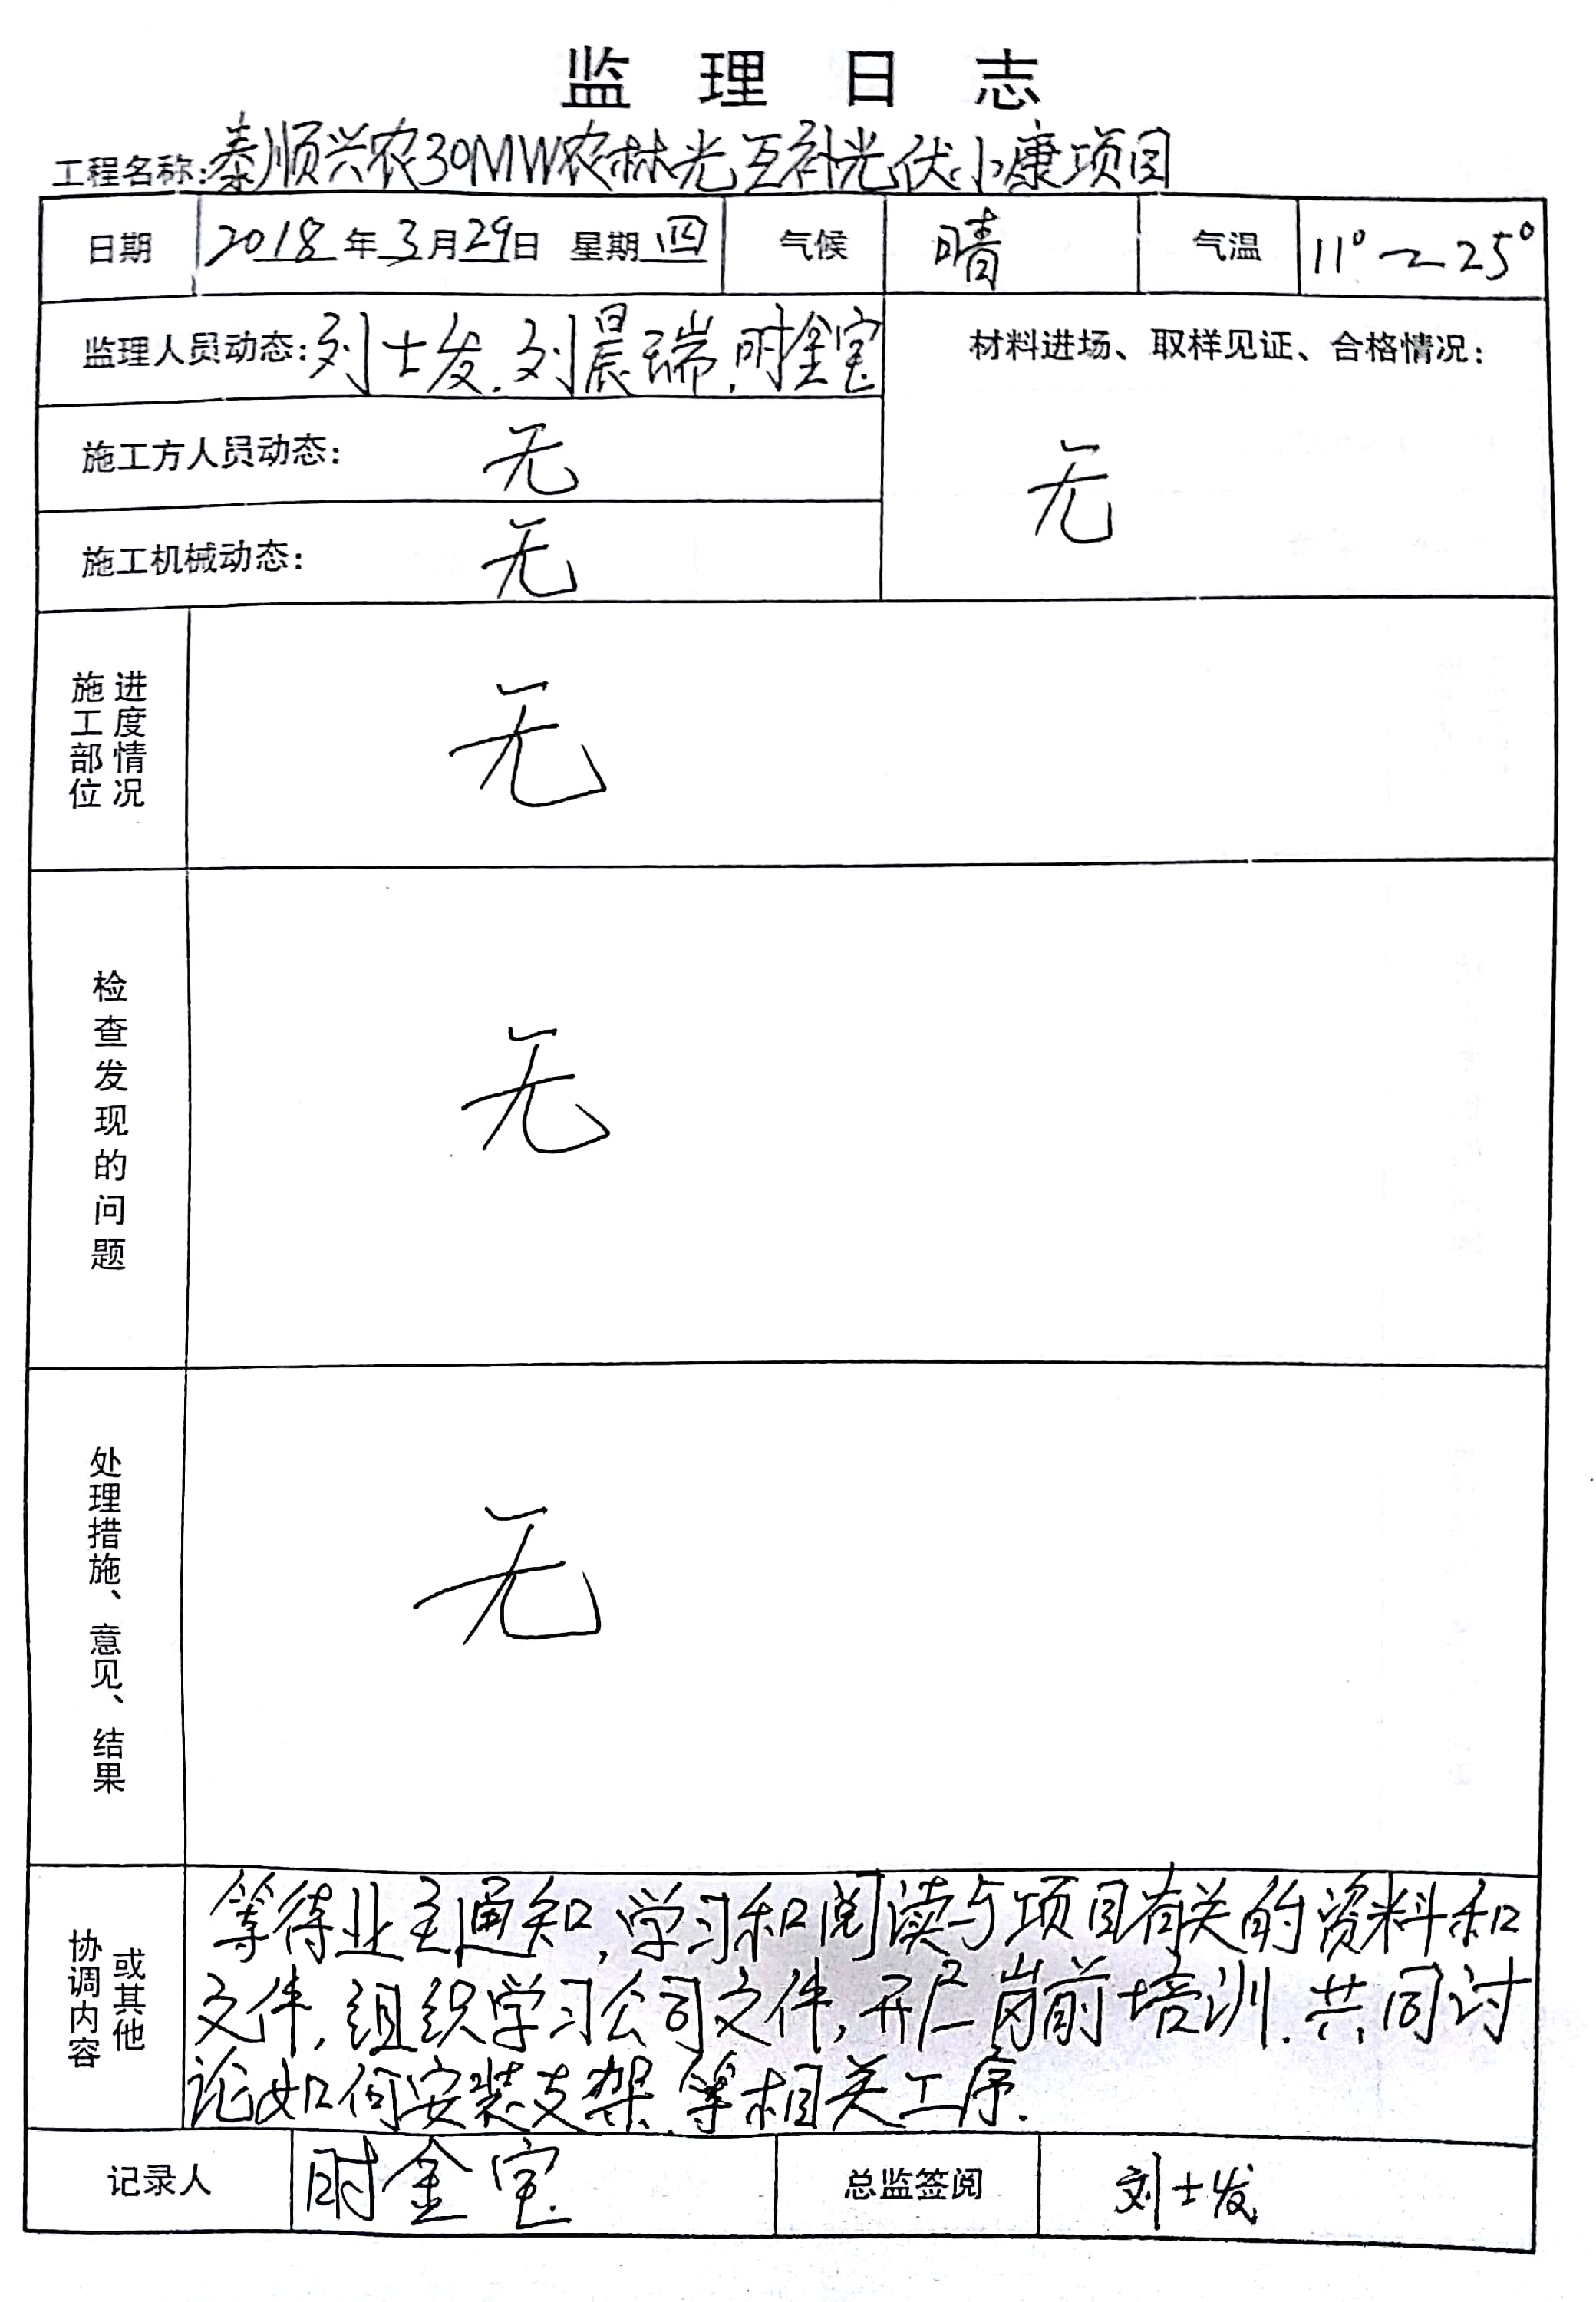 监理日志
工程名称:泰顺兴农30MW农林光互补光伏小康项目
日期 2018年3月29日 星期四 气候 晴 气温 11°~25°
监理人员动态:刘士发.刘晨瑞,时金宝
材料进场、取样见证、合格情况:
无
施工方人员动态: 无
施工机械动态: 无
施工部位
进度情况
无
检查发现的问题
无
处理措施、意见、结果
无
协调内容
或其他
等待业主通知,学习和阅读与项目有关的资料和
文件,组织学习公司文件,开广岗前培训.共同讨
论如何安装支架.等相关工序.
记录人 时金宝 总监签阅 刘士发